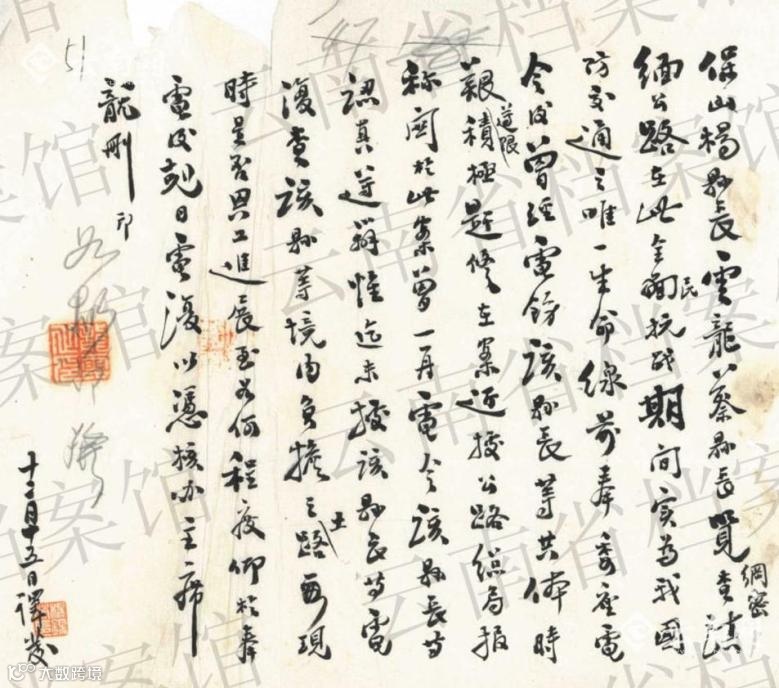 保山楊縣長雲龍蔡縣長覽綱密查滇
緬公路在此全民抗战期间实為我國
防交通之唯一生命線前奉委座電
令後曾經電飭該縣長等共体時
艱遵限積極趕修在案近據公路總局报
称関於此案曾一再電令該縣長等
認真遵辦惟迄未據該縣長等電
復查該縣等境内負擔之路土現
時是否興工進展至如何程度仰於奉
電後尅日電復以憑核办主席
龍刪印
十二月十五日譯發
51
云南省档案馆
大数跨境